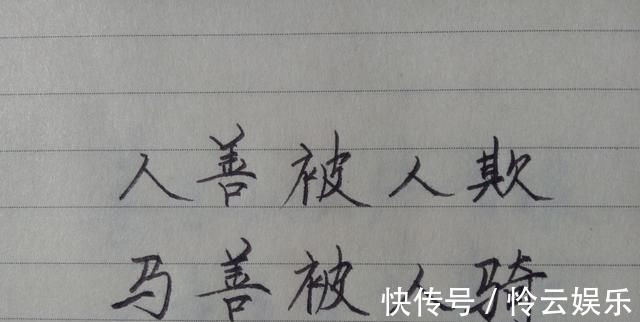 人善被人欺
马善被人骑
快传号/怜云娱乐